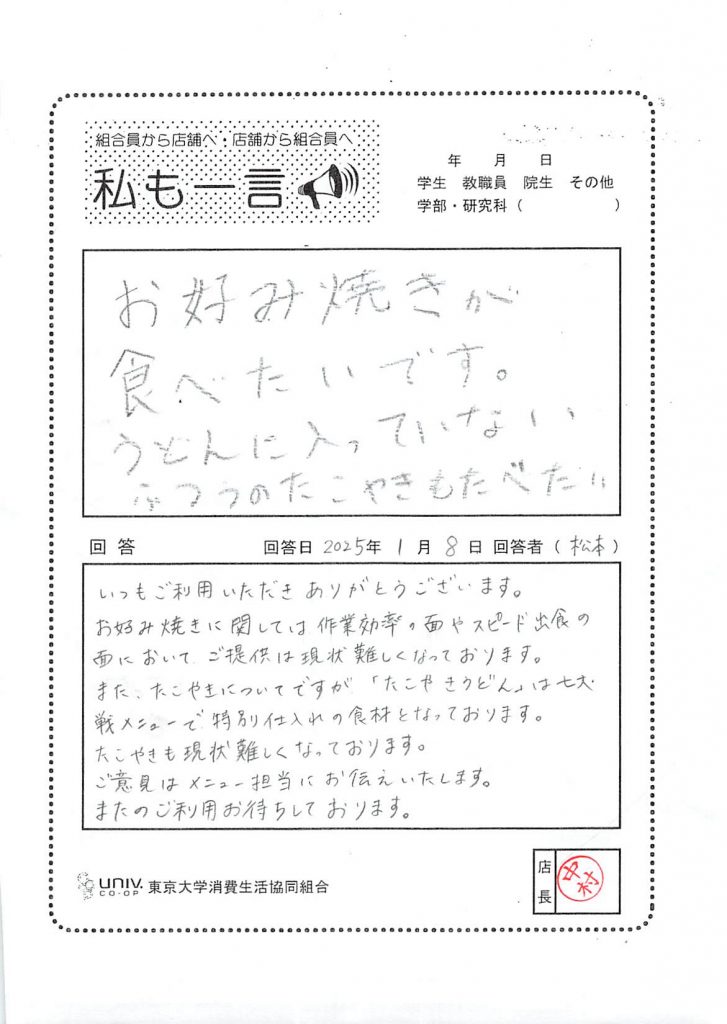 組合員から店舗へ・店舗から組合員へ
私も一言
年 月 日
学生 教職員 院生 その他
学部・研究科（ ）
お好み焼きが
食べたいです。
うどんに入っていない
ふつうのたこやきもたべたい
回答 回答日 2025年 1月 8日 回答者（松本）
いつもご利用いただきありがとうございます。
お好み焼きに関しては作業効率の面やスピード出食の
面において、ご提供は現状難しくなっております。
また、たこやきについてですが「たこやきうどん」は七大
戦メニューで特別仕入れの食材となっております。
たこやきも現状難しくなっております。
ご意見はメニュー担当にお伝えいたします。
またのご利用お待ちしております。
店長
中村
UNIV.
CO-OP
東京大学消費生活協同組合